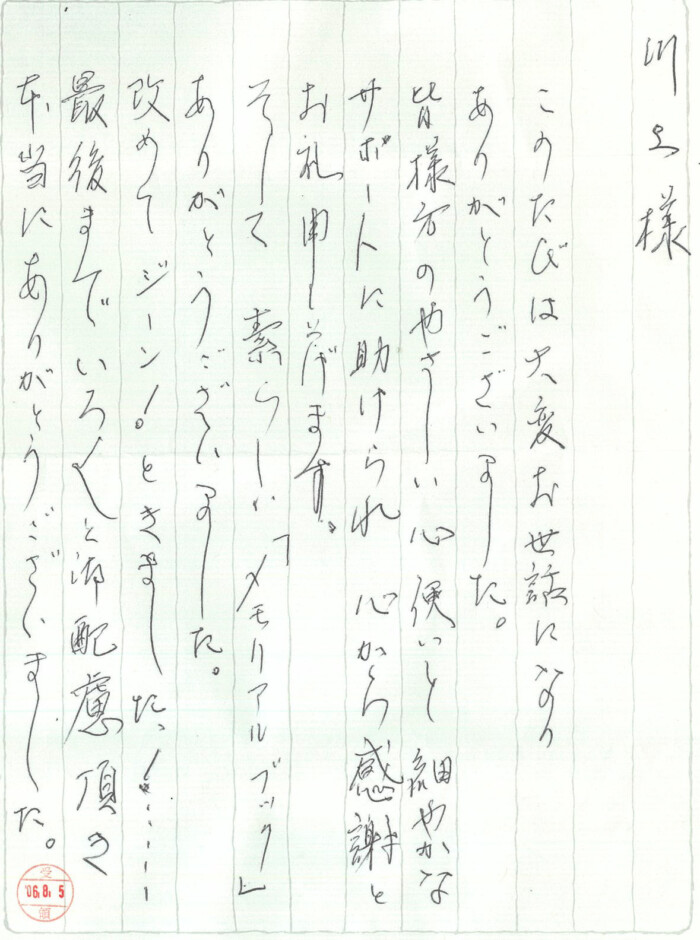 川上様
このたびは大変お世話になり
ありがとうございました。
皆様方のやさしい心使いと細やかな
サポートに助けられ 心から感謝と
お礼申し上げます。
そして 素らしい「メモリアルブック」
ありがとうございました。
改めて ジーン!。ときましたっ!……
最後までいろ〱と御配慮頂き
本当にありがとうございました。
受
'06.8.5
領